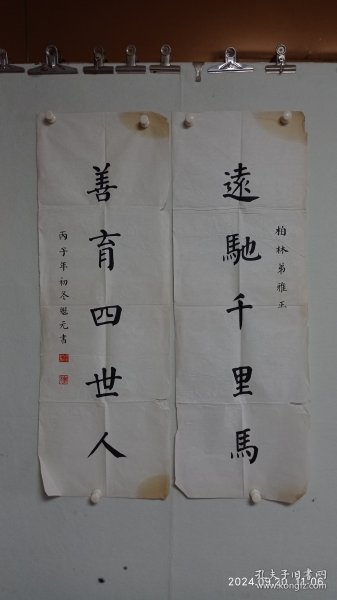 遠馳千里馬
柏林弟雅正
善育四世人
丙子年初冬魁元書
2024.09.20 11:06
孔夫子旧书网